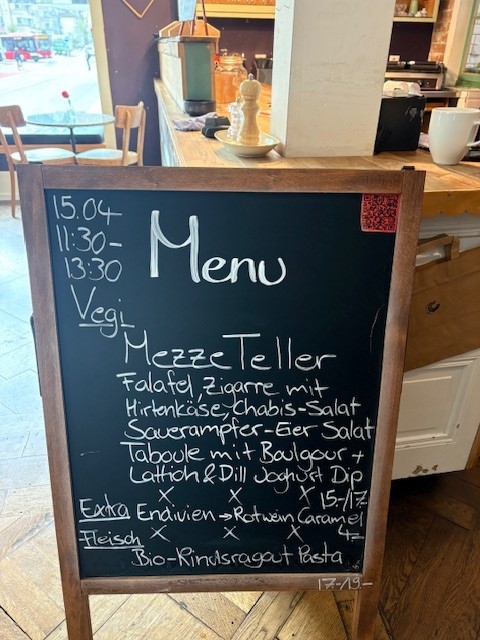 15.04
11:30-
13:30
Menu
Vegi
Mezze Teller
Falafel, Zigarre mit
Hirtenkäse, Chabis-Salat
Sauerampfer-Eier Salat
Taboule mit Boulgour +
Lattich & Dill Joghurt Dip
X X X 15.-/17.-
Extra Endivien → Rotwein Caramel
Fleisch X X 4.-
Bio-Rindsragout Pasta
17.-/19.-